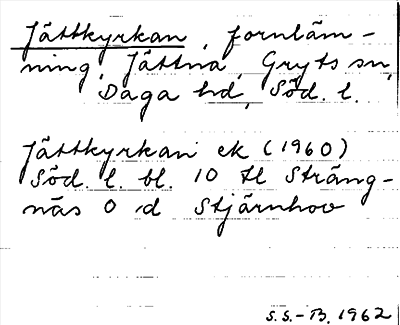 Jättkyrkan, fornläm-
ning, Jättna, Gryts sn,
Daga hd, Söd. l.
Jättkyrkan ek (1960)
Söd. l. bl. 10 tl Sträng-
näs O id Stjärnhov
S.S.-B. 1962